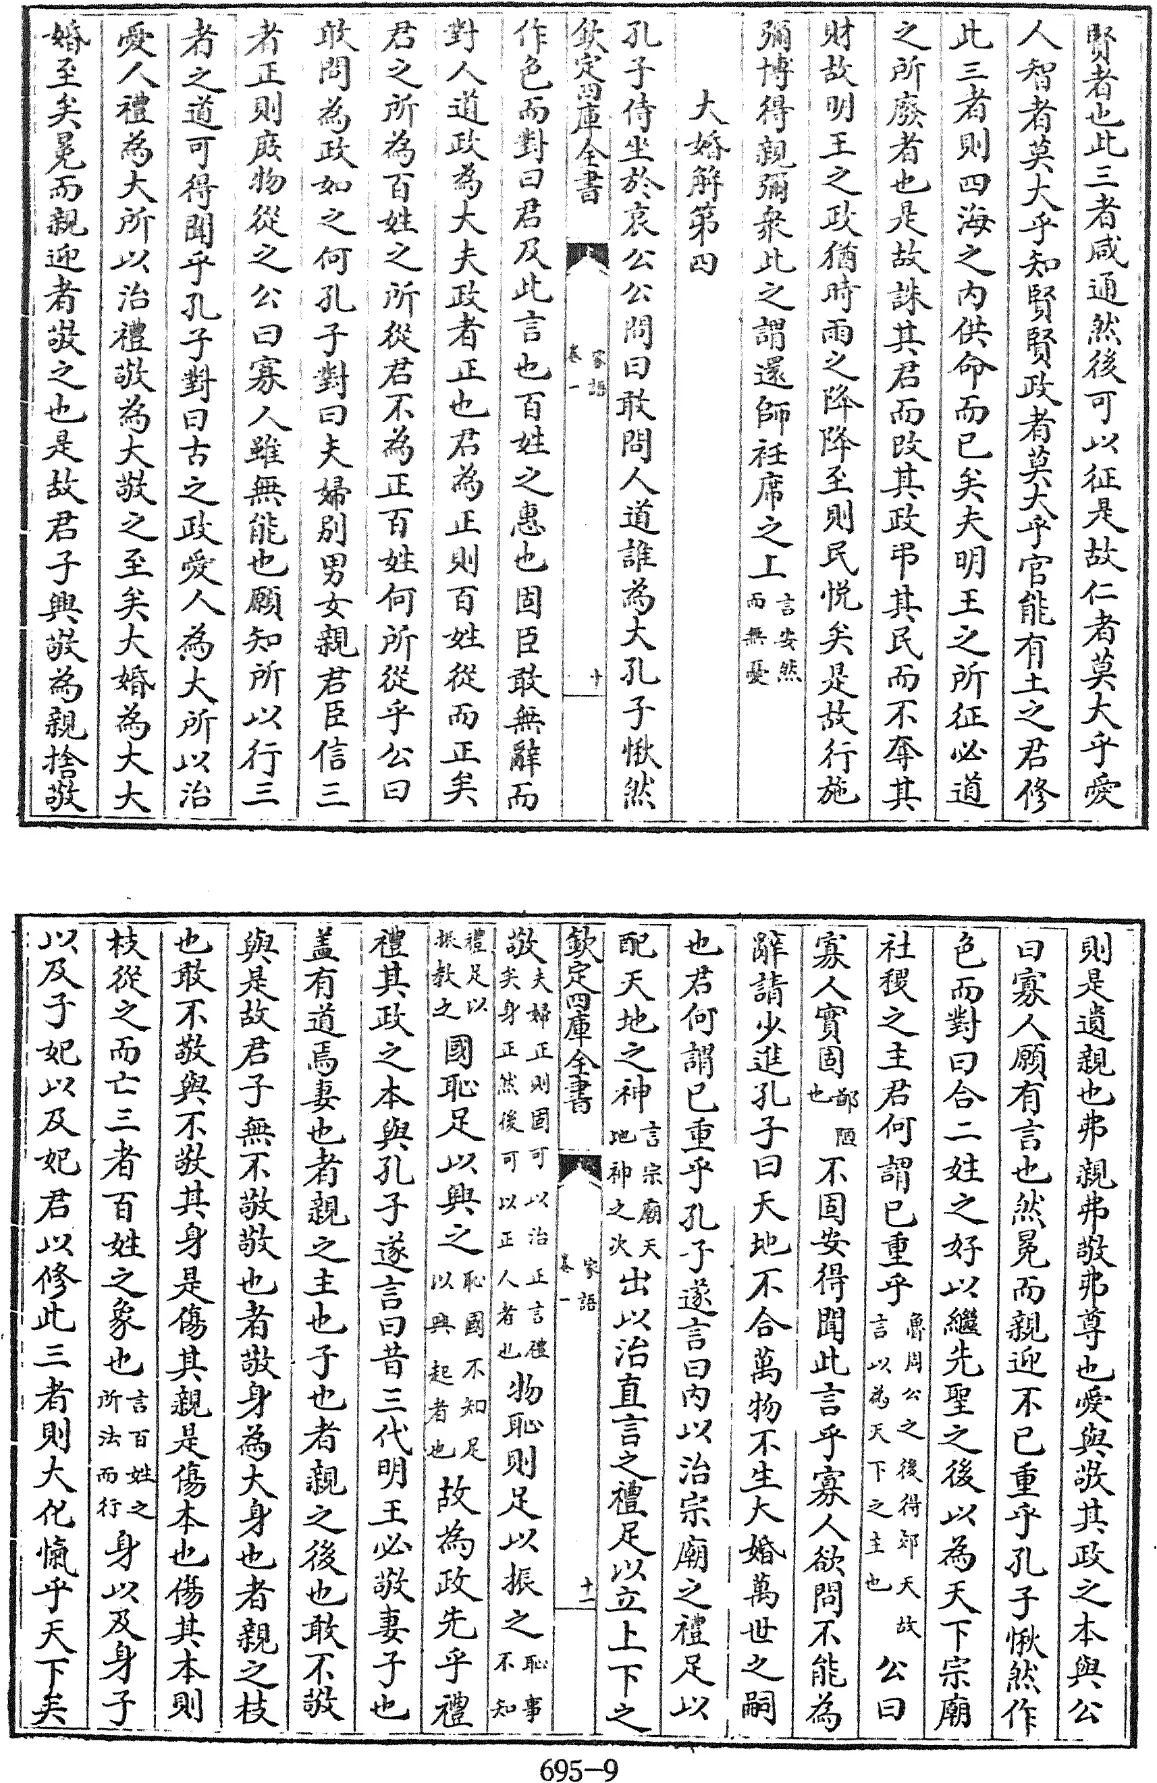 賢者也此三者咸通然後可以征是故仁者莫大乎愛
人智者莫大乎知賢賢政者莫大乎官能有土之君修
此三者則四海之内供命而已矣夫明王之所征必道
之所廢者也是故誅其君而改其政弔其民而不奪其
財故明王之政猶時雨之降降至則民悦矣是故行施
彌博得親彌衆此之謂還師衽席之上言安然而無憂
大婚解第四
孔子侍坐於哀公公問曰敢問人道誰為大孔子愀然
欽定四庫全書 家語卷一 十
作色而對曰君及此言也百姓之惠也固臣敢無辭而
對人道政為大夫政者正也君為正則百姓從而正矣
君之所為百姓之所從君不為正百姓何所從乎公曰
敢問為政如之何孔子對曰夫婦別男女親君臣信三
者正則庶物從之公曰寡人雖無能也願知所以行三
者之道可得聞乎孔子對曰古之政愛人為大所以治
愛人禮為大所以治禮敬為大敬之至矣大婚為大大
婚至矣冕而親迎者敬之也是故君子興敬為親捨敬
則是遺親也弗親弗敬弗尊也愛與敬其政之本與公
曰寡人願有言也然冕而親迎不已重乎孔子愀然作
色而對曰合二姓之好以繼先聖之後以為天下宗廟
社稷之主君何謂已重乎魯周公之後得郊天故言以為天下之主也公曰
寡人實固鄙陋也不固安得聞此言乎寡人欲問不能為
辭請少進孔子曰天地不合萬物不生大婚萬世之嗣
也君何謂已重乎孔子遂言曰内以治宗廟之禮足以
配天地之神言宗廟天地神之次出以治直言之禮足以立上下之
欽定四庫全書 家語卷一 十一
敬夫婦正則固可以治正言禮矣身正然後可以正人者也物恥則足以振之恥事不知
禮足以振教之國恥足以興之恥國不知足以興起者也故為政先乎禮
禮其政之本與孔子遂言曰昔三代明王必敬妻子也
盖有道焉妻也者親之主也子也者親之後也敢不敬
與是故君子無不敬敬也者敬身為大身也者親之枝
也敢不敬與不敬其身是傷其親是傷本也傷其本則
枝從之而亡三者百姓之象也言百姓之所法而行身以及身子
以及子妃以及妃君以修此三者則大化愾乎天下矣
695-9